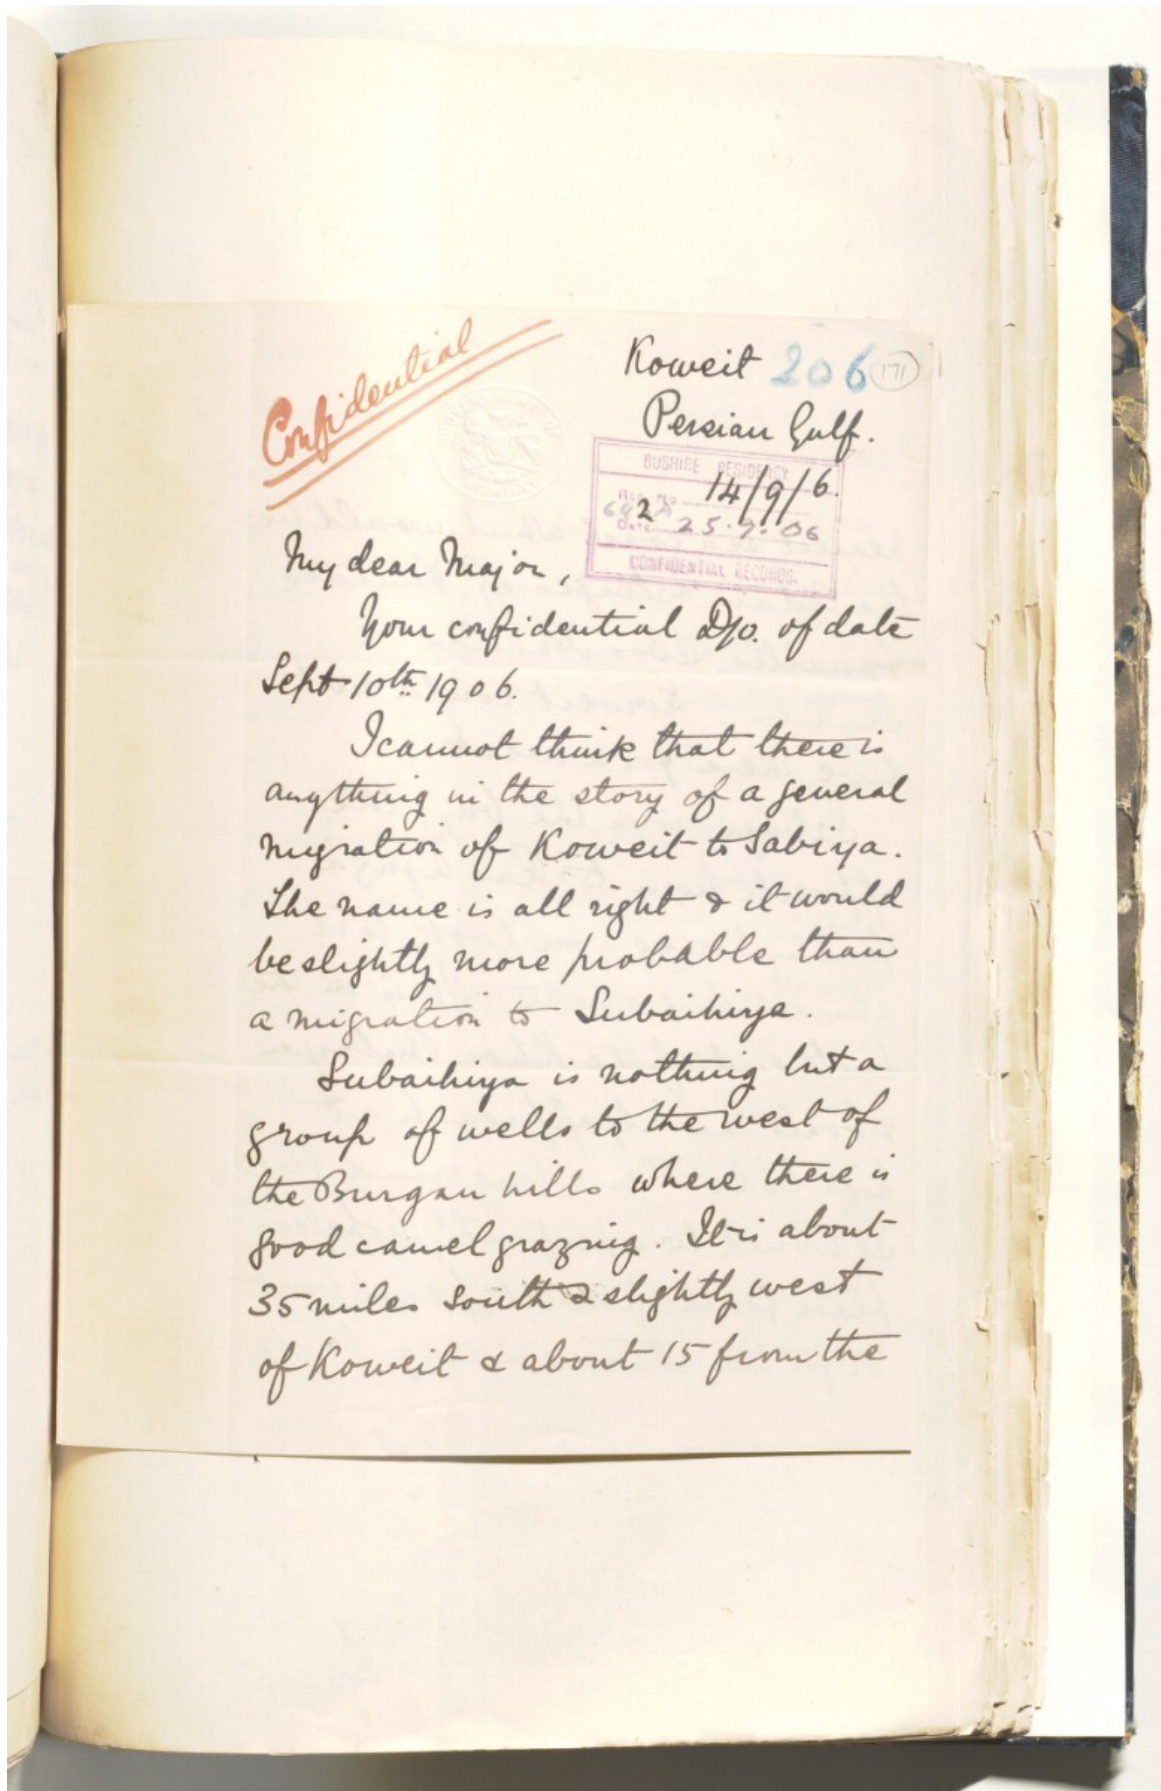 Confidential
Koweit 206 171
Persian Gulf.
BUSHIRE RESIDENCY
14/9/6.
Reg. No. 692
Date 25.9.06
CONFIDENTIAL RECORDS.
My dear Major,
Your confidential D/o. of date
Sept 10th 1906.
I cannot think that there is
anything in the story of a general
migration of Koweit to Sabiya.
The name is all right & it would
be slightly more probable than
a migration to Subaihiya.
Subaihiya is nothing but a
group of wells to the west of
the Burgan hills where there is
good camel grazing. It is about
35 miles south & slightly west
of Koweit & about 15 from the